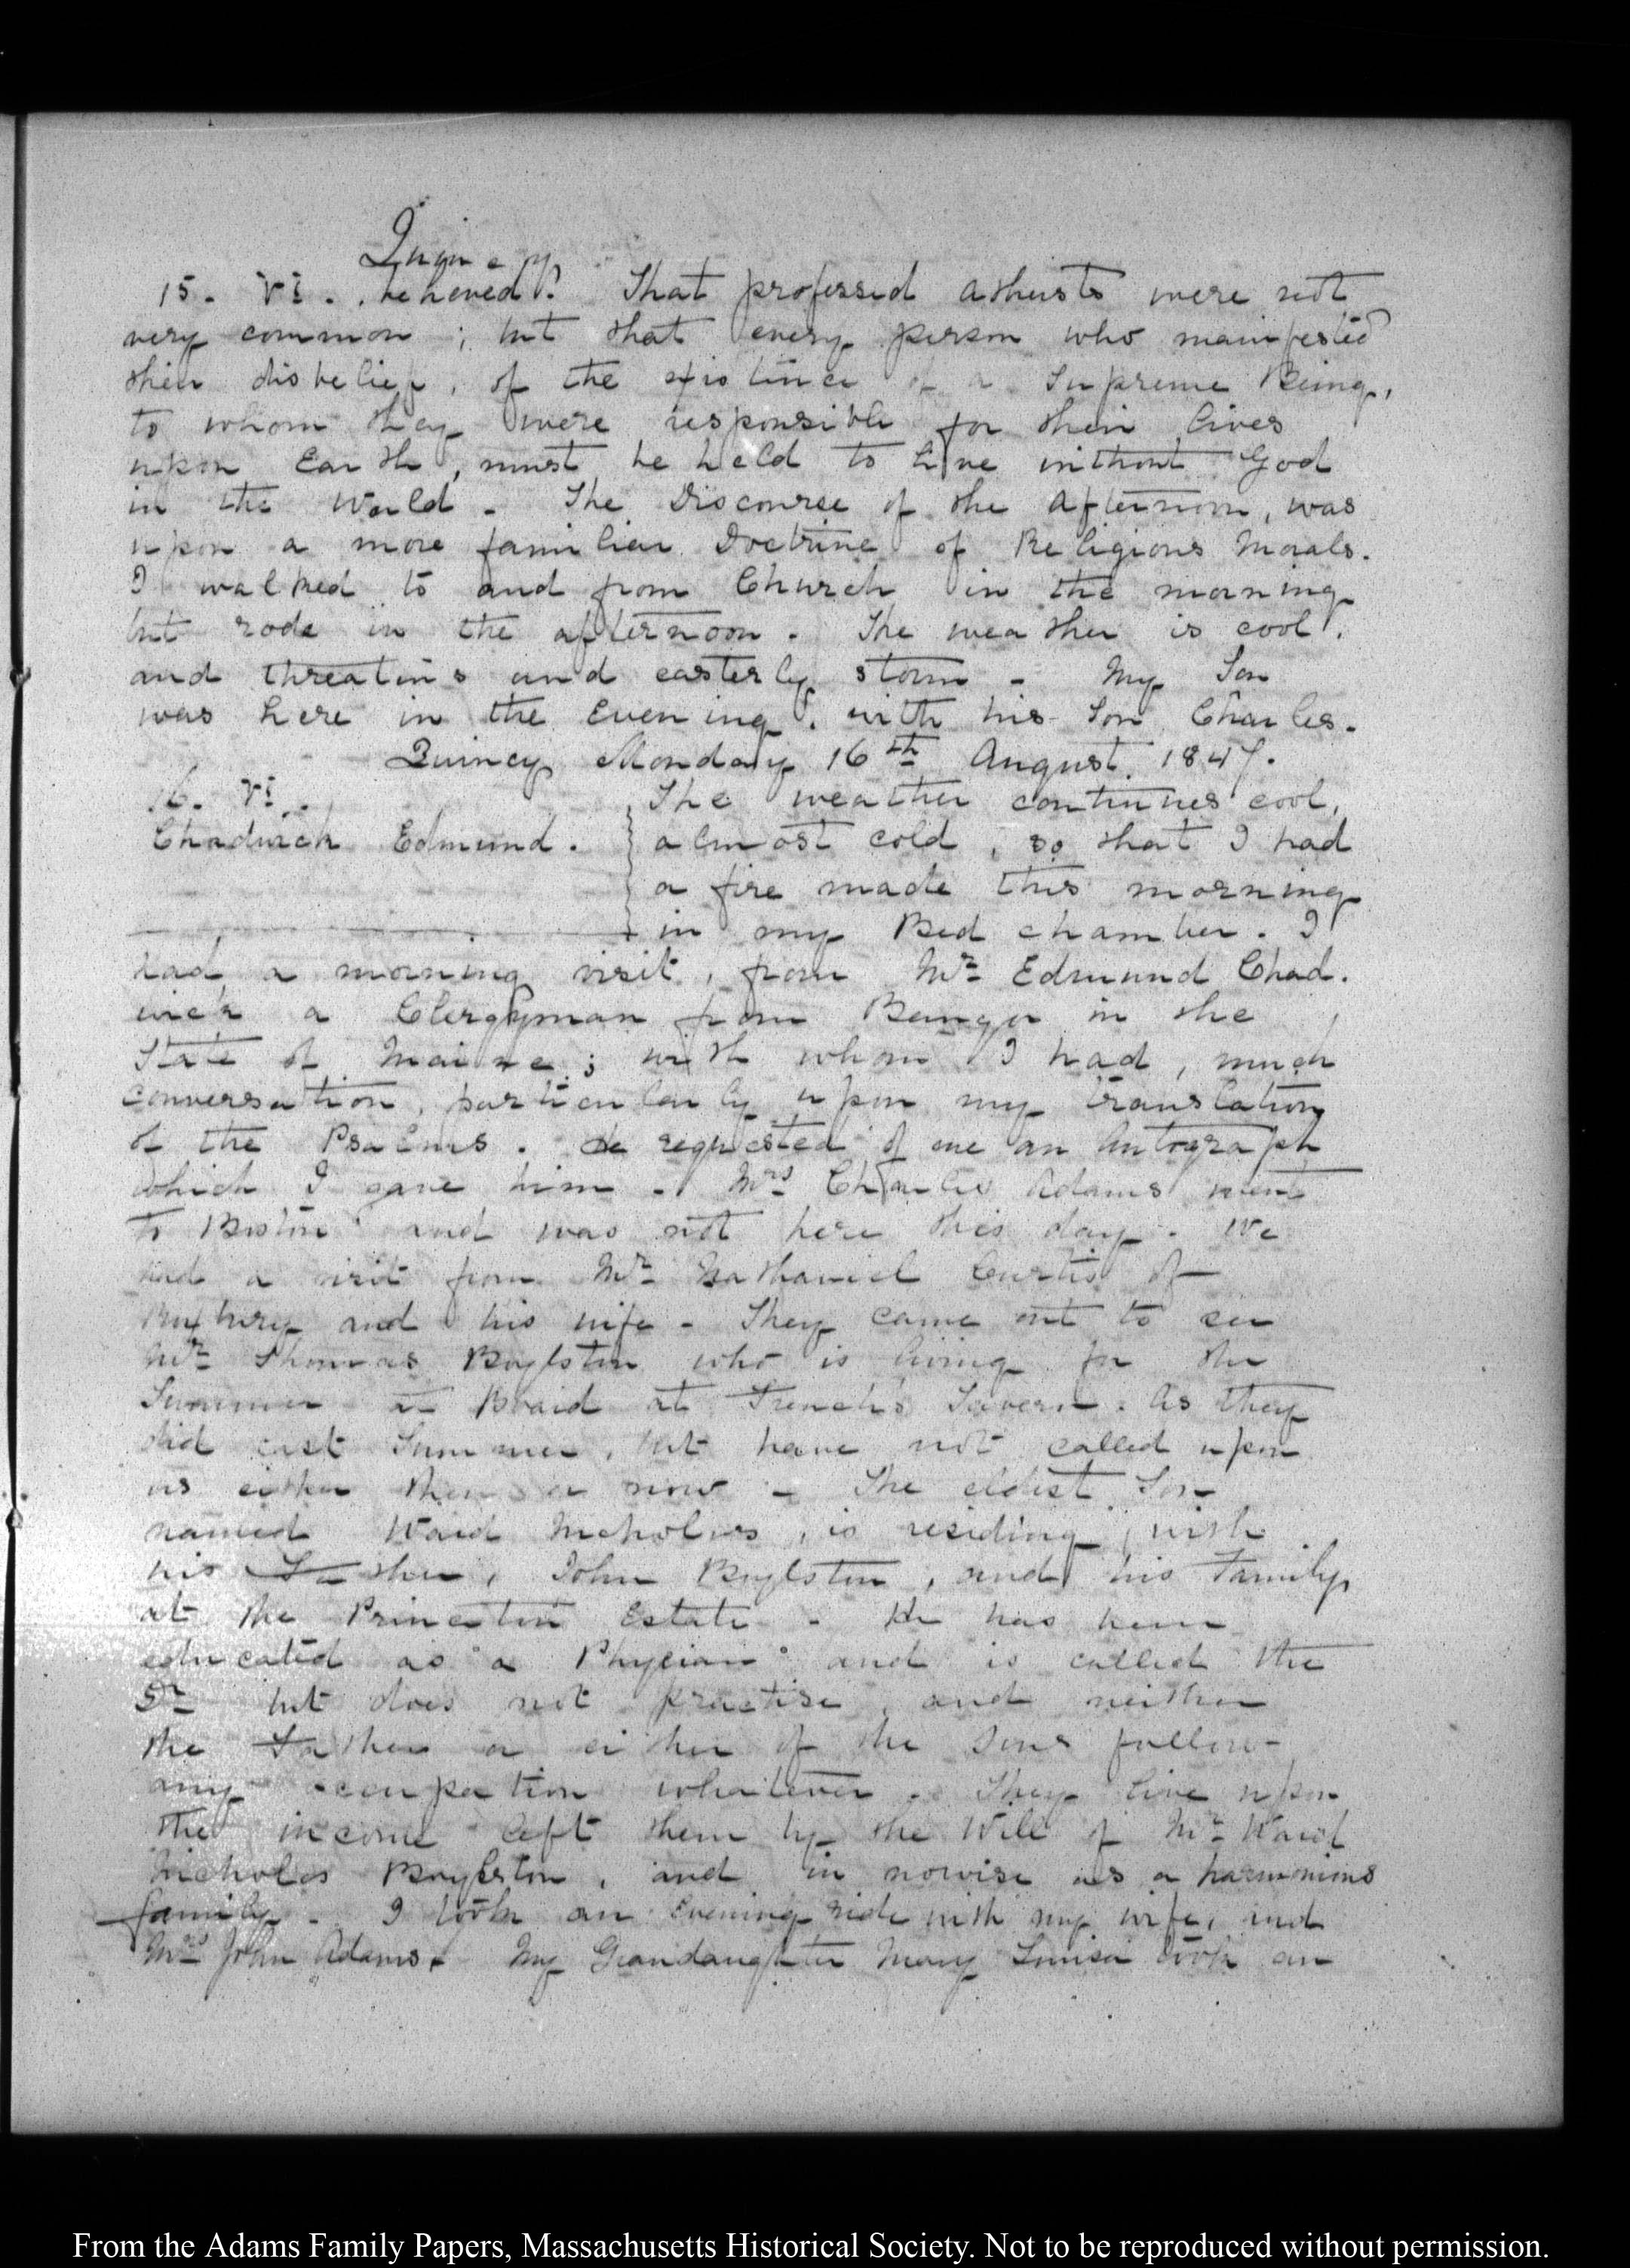 Quincy
15. VI. believed. That professed atheists were not
very common; but that every person who manifested
their disbelief, of the existence of a Supreme Being,
to whom they were responsible for their lives
upon Earth, must be held to live without God
in the World - The Discourse of the Afternoon, was
upon a more familiar Doctrine of Religious Morals.
I walked to and from Church in the morning
but rode in the afternoon. The weather is cool,
and threatens and easterly storm - My Son
was here in the Evening, with his Son Charles.
Quincy Monday 16th August. 1847.
16. VI.
Chadwick Edmund.
The weather continues cool,
almost cold, so that I had
a fire made this morning
in my Bed chamber. I
had a morning visit, from Mr Edmund Chad.
wick a Clergyman from Bangor in the
State of Maine; with whom I had, much
conversation, particularly upon my translation
of the Psalms. He requested of me an Autograph
which I gave him - Mrs Charles Adams went
to Boston and was not here this day - We
had a visit from Mr Nathaniel Curtis of
Roxbury and his wife - They came out to see
Mr Thomas Boylston who is living for the
Summer at Board at French's Tavern. As they
did last Summer, but have not called upon
us either then or now - The eldest Son
named Ward Nicholas, is residing with
his Father, John Boylston, and his Family,
at the Princeton Estate - He has been
educated as a Phycian and is called the
Dr but does not practise, and neither
the Father or either of the Sons follow
any occupation whatever - They live upon
the income left them by the Will of Mr Ward
Nicholas Boylston, and in nowise as a harmonious
family - I took an Evening ride with my wife, and
Mrs John Adams. My Grandaughter Mary Louisa took an
From the Adams Family Papers, Massachusetts Historical Society. Not to be reproduced without permission.